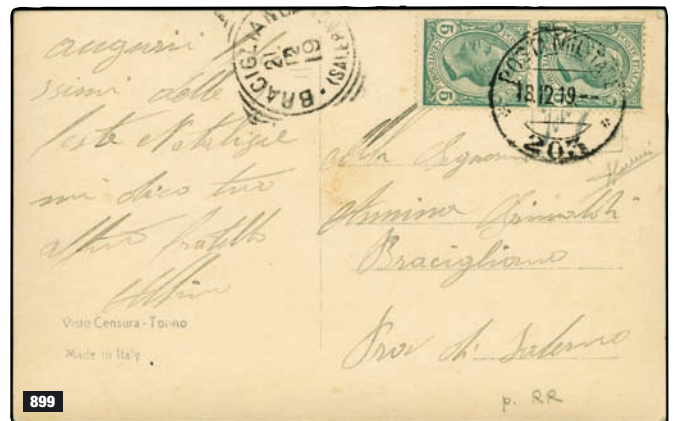 auguri
ssimi delle
feste Natalizie
mi dico tuo
aff.mo fratello
Visto Censura - Torino
Made in Italy
BRACIGLIANO (SALERNO)
21 12 19
5 5
POSTA MILITARE
18.12.19
203
Alla Signorina
Annina Grimaldi
Bracigliano
Prov di Salerno
p. RR
899